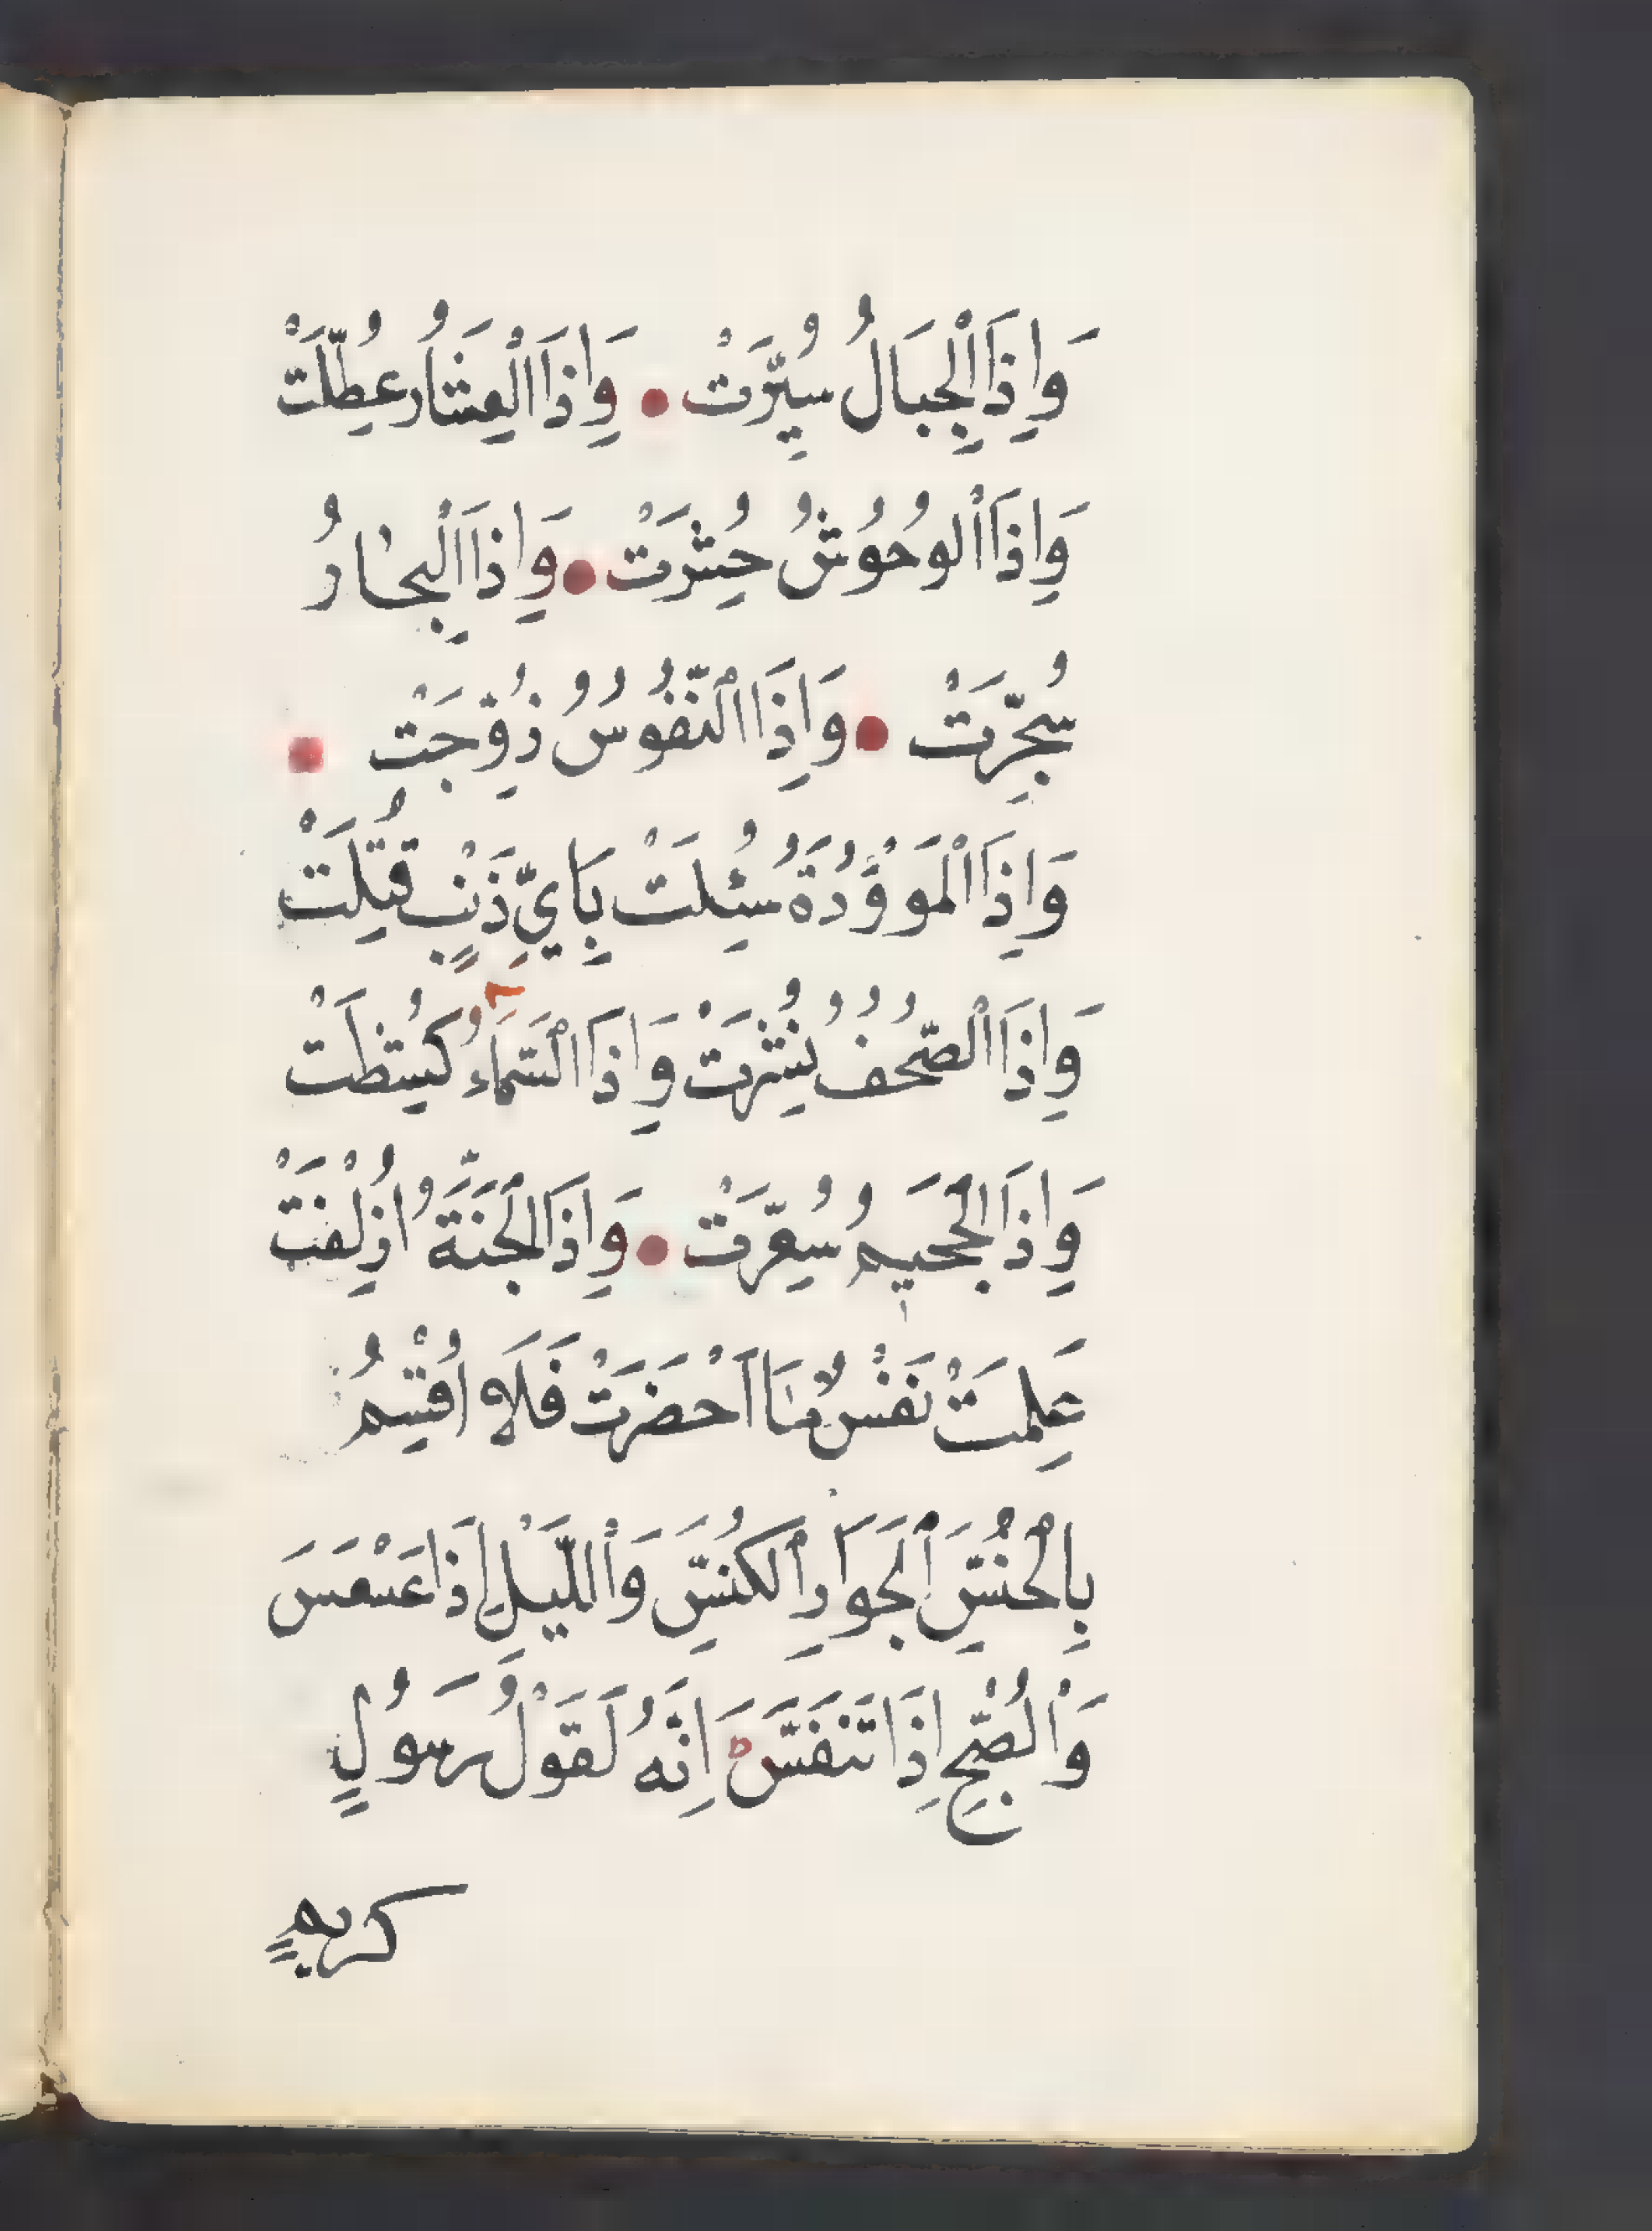 وَاِذَا الْجِبَالُ سُيِّرَتْ وَاِذَا الْعِشَارُ عُطِّلَتْ
وَاِذَا الْوُحُوُشُ حُشِرَتْ وَاِذَا الْبِحَارُ
سُجِّرَتْ وَاِذَا النُّفُوُسُ زُوِّجَتْ
وَاِذَا الْمَوْؤُدَةُ سُئِلَتْ بِاَيِّ ذَنْبٍ قُتِلَتْ
وَاِذَا الصُّحُفُ نُشِرَتْ وَاِذَا السَّمَاءُ كُشِطَتْ
وَاِذَا الْجَحيمُ سُعِّرَتْ وَاِذَا الْجَنَّةُ اُزْلِفَتْ
عَلِمَتْ نَفْسٌ مَا اَحْضَرَتْ فَلَا اُقْسِمُ
بِالْخُنَّسِ الْجَوَارِ الْكُنَّسِ وَالَّيْلِ اِذَا عَسْعَسَ
وَالصُّبْحِ اِذَا تَنَفَّسَ اِنَّهُ لَقَوْلُ رَسُوُلٍ
كريمٍ